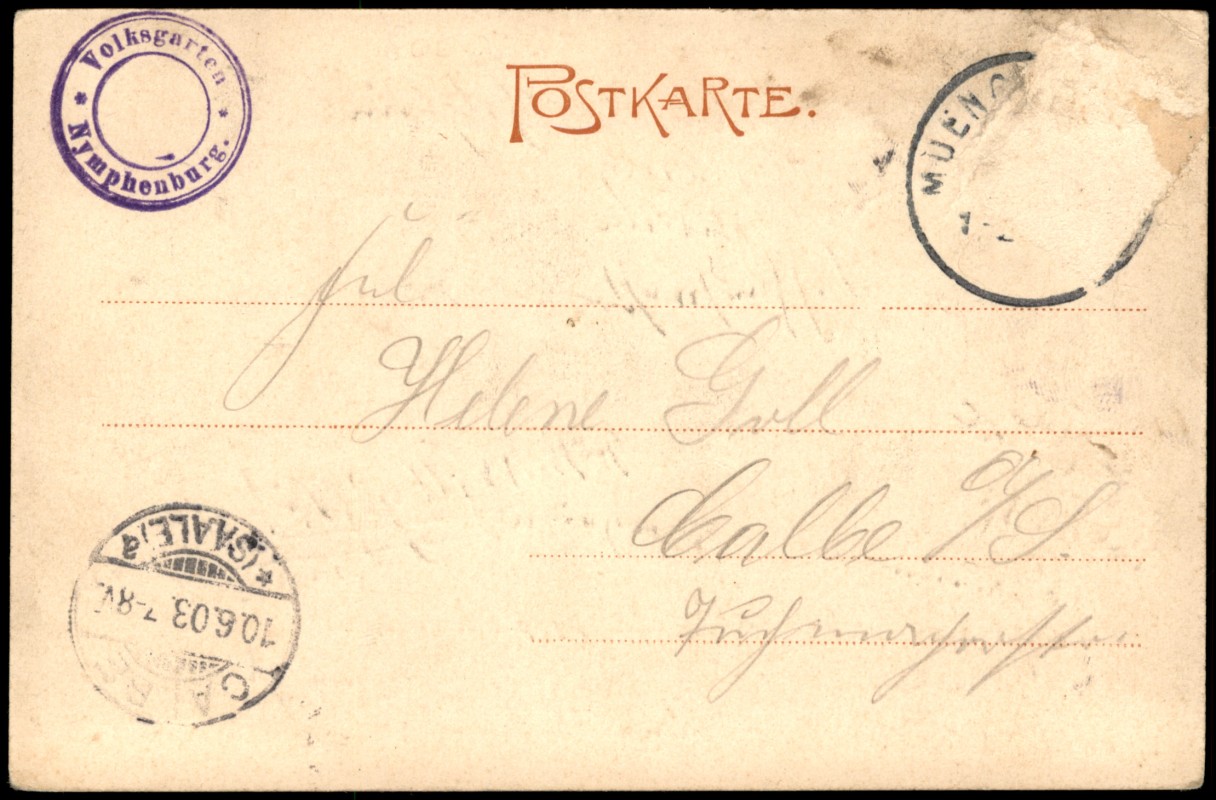 * Volksgarten * Nymphenburg.
POSTKARTE.
MUENC
1-2
Frl
Helene Goll
Calbe a/S.
CALBE
10.6.03. 7-8V.
* (SAALE) a